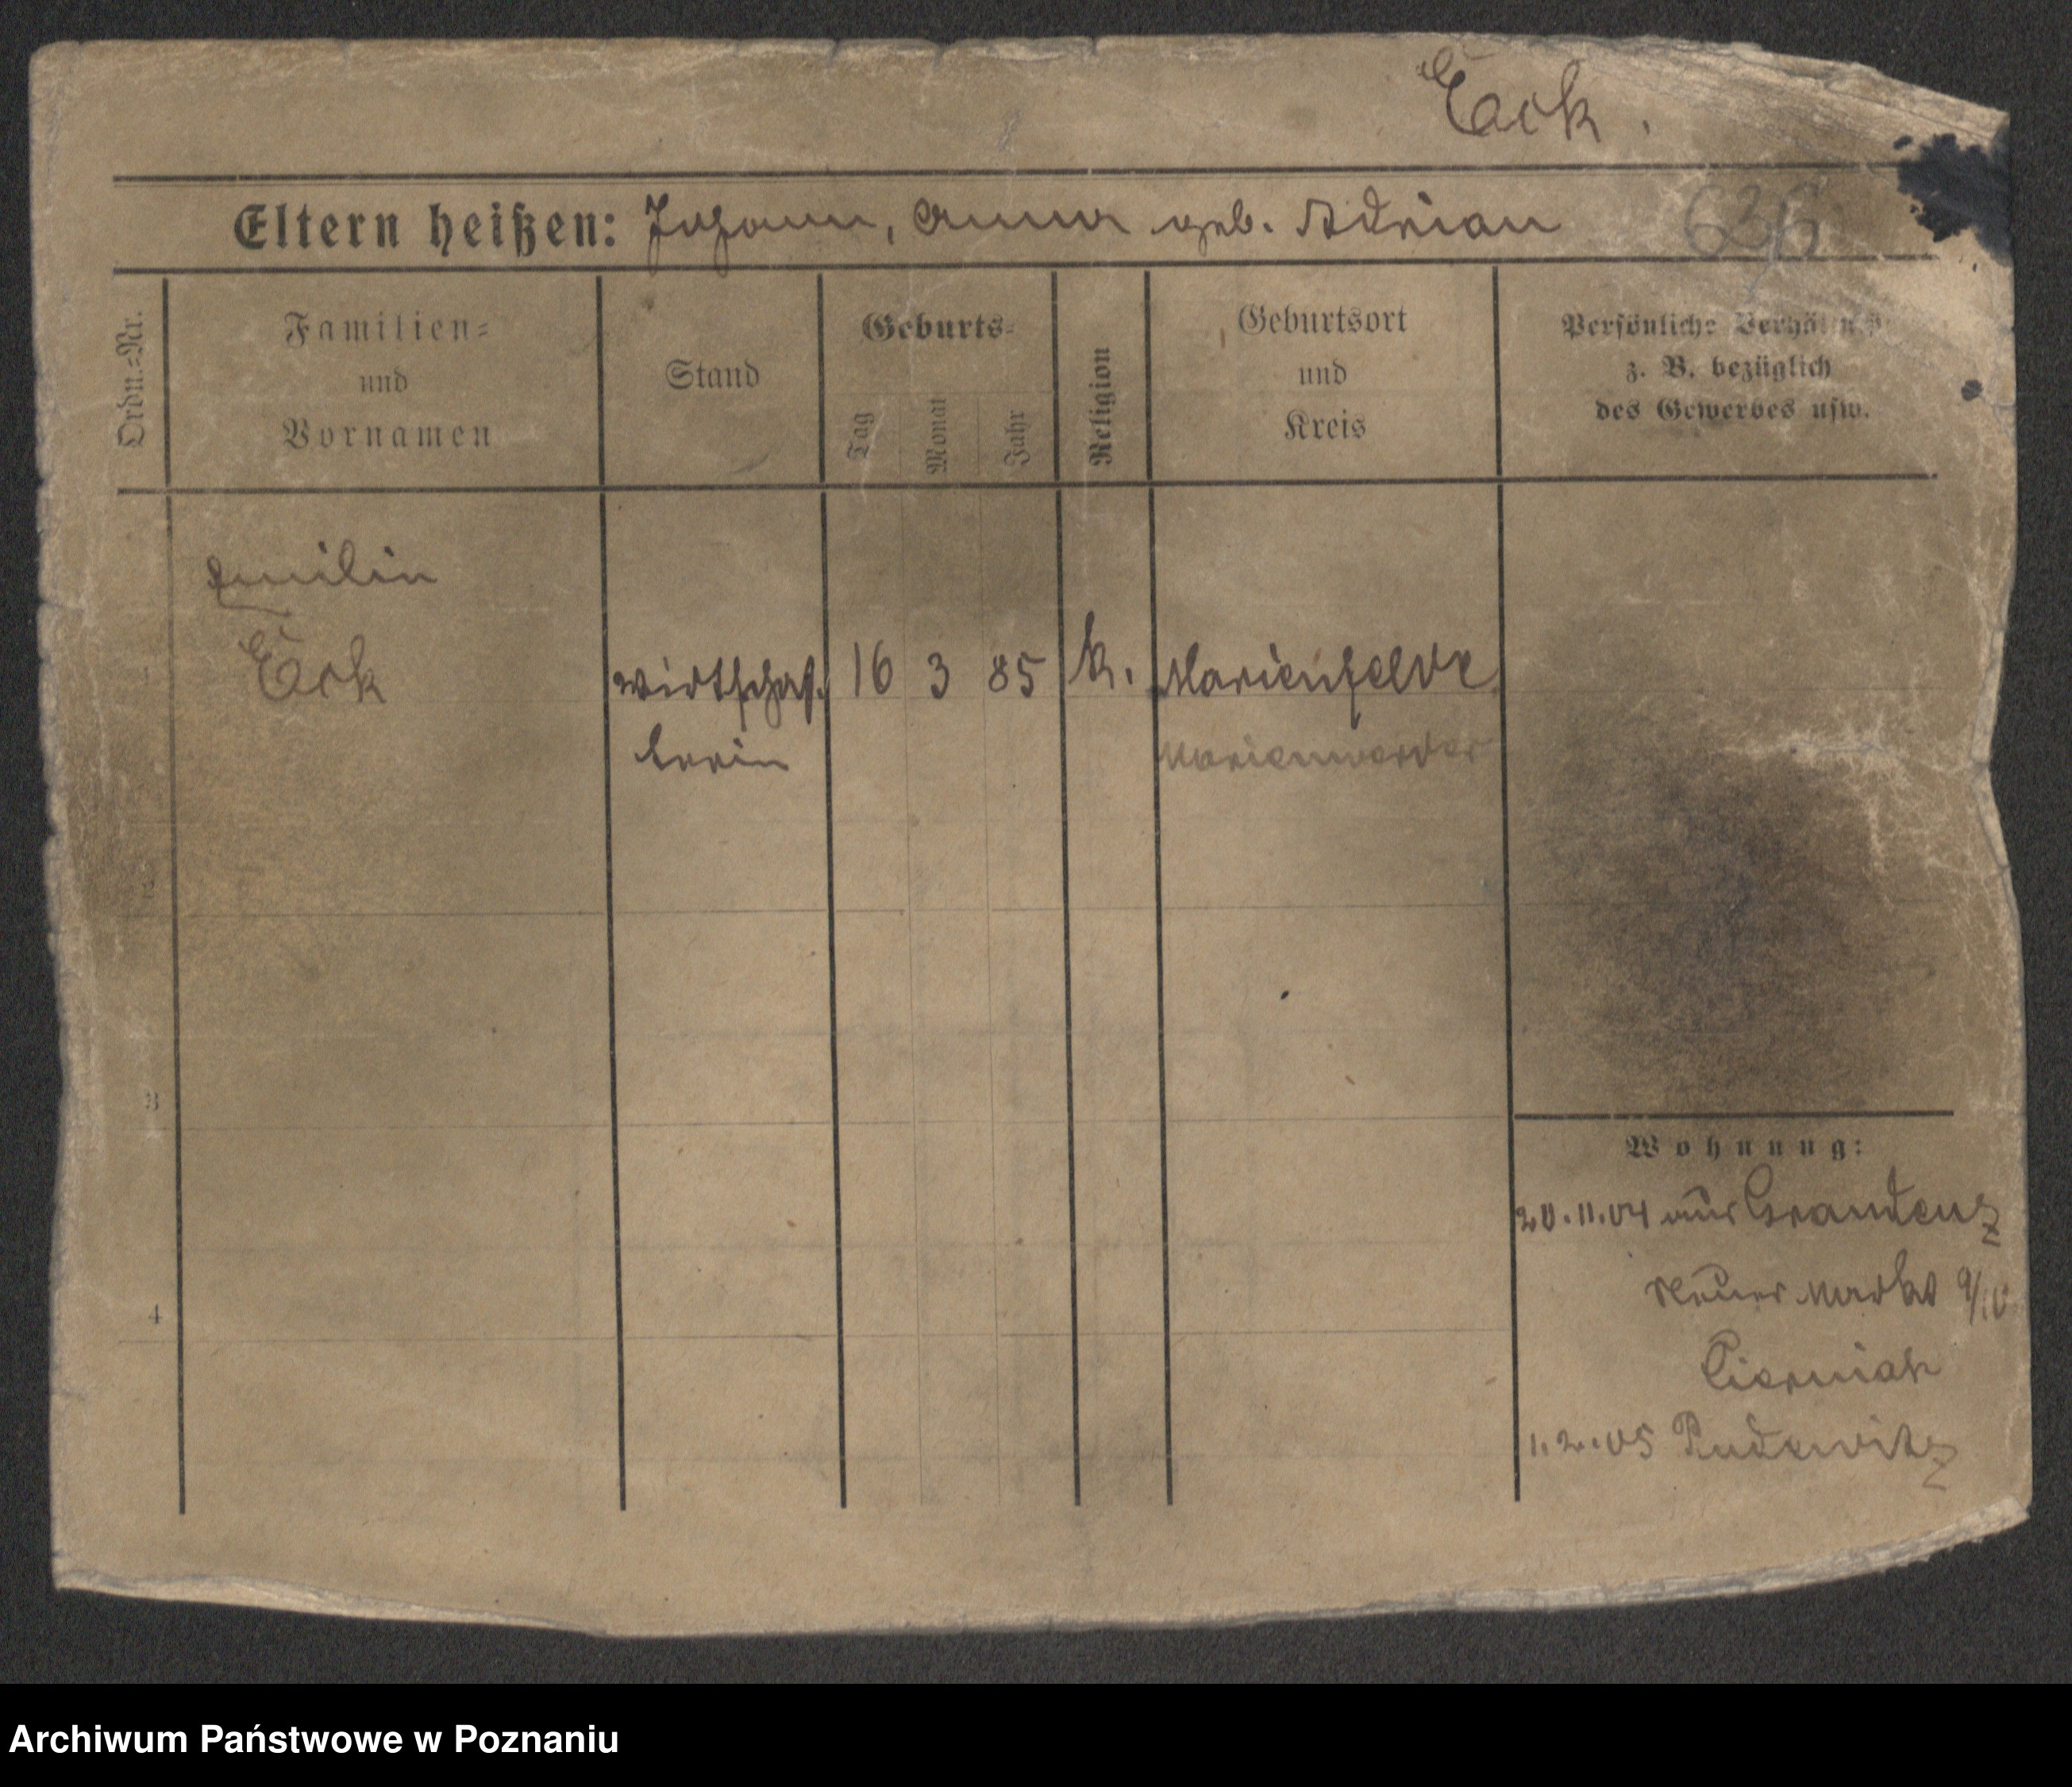 Eck.
Eltern heißen: Johann, Anna geb. Adrian 626
Ordn.-Nr.
Familien-
und
Vornamen
Stand
Geburts-
Tag
Monat
Jahr
Religion
Geburtsort
und
Kreis
Persönliche Verhältnisse
z. B. bezüglich
des Gewerbes usw.
Emilie
Eck
Wirtschaf-
terin
16 3 85
k.
Marienfelde
Marienwerder
3
4
Wohnung:
20.11.04 aus Graudenz
Neuer Markt 9/10
Pierniak
1.2.05 Pudewitz
Archiwum Państwowe w Poznaniu